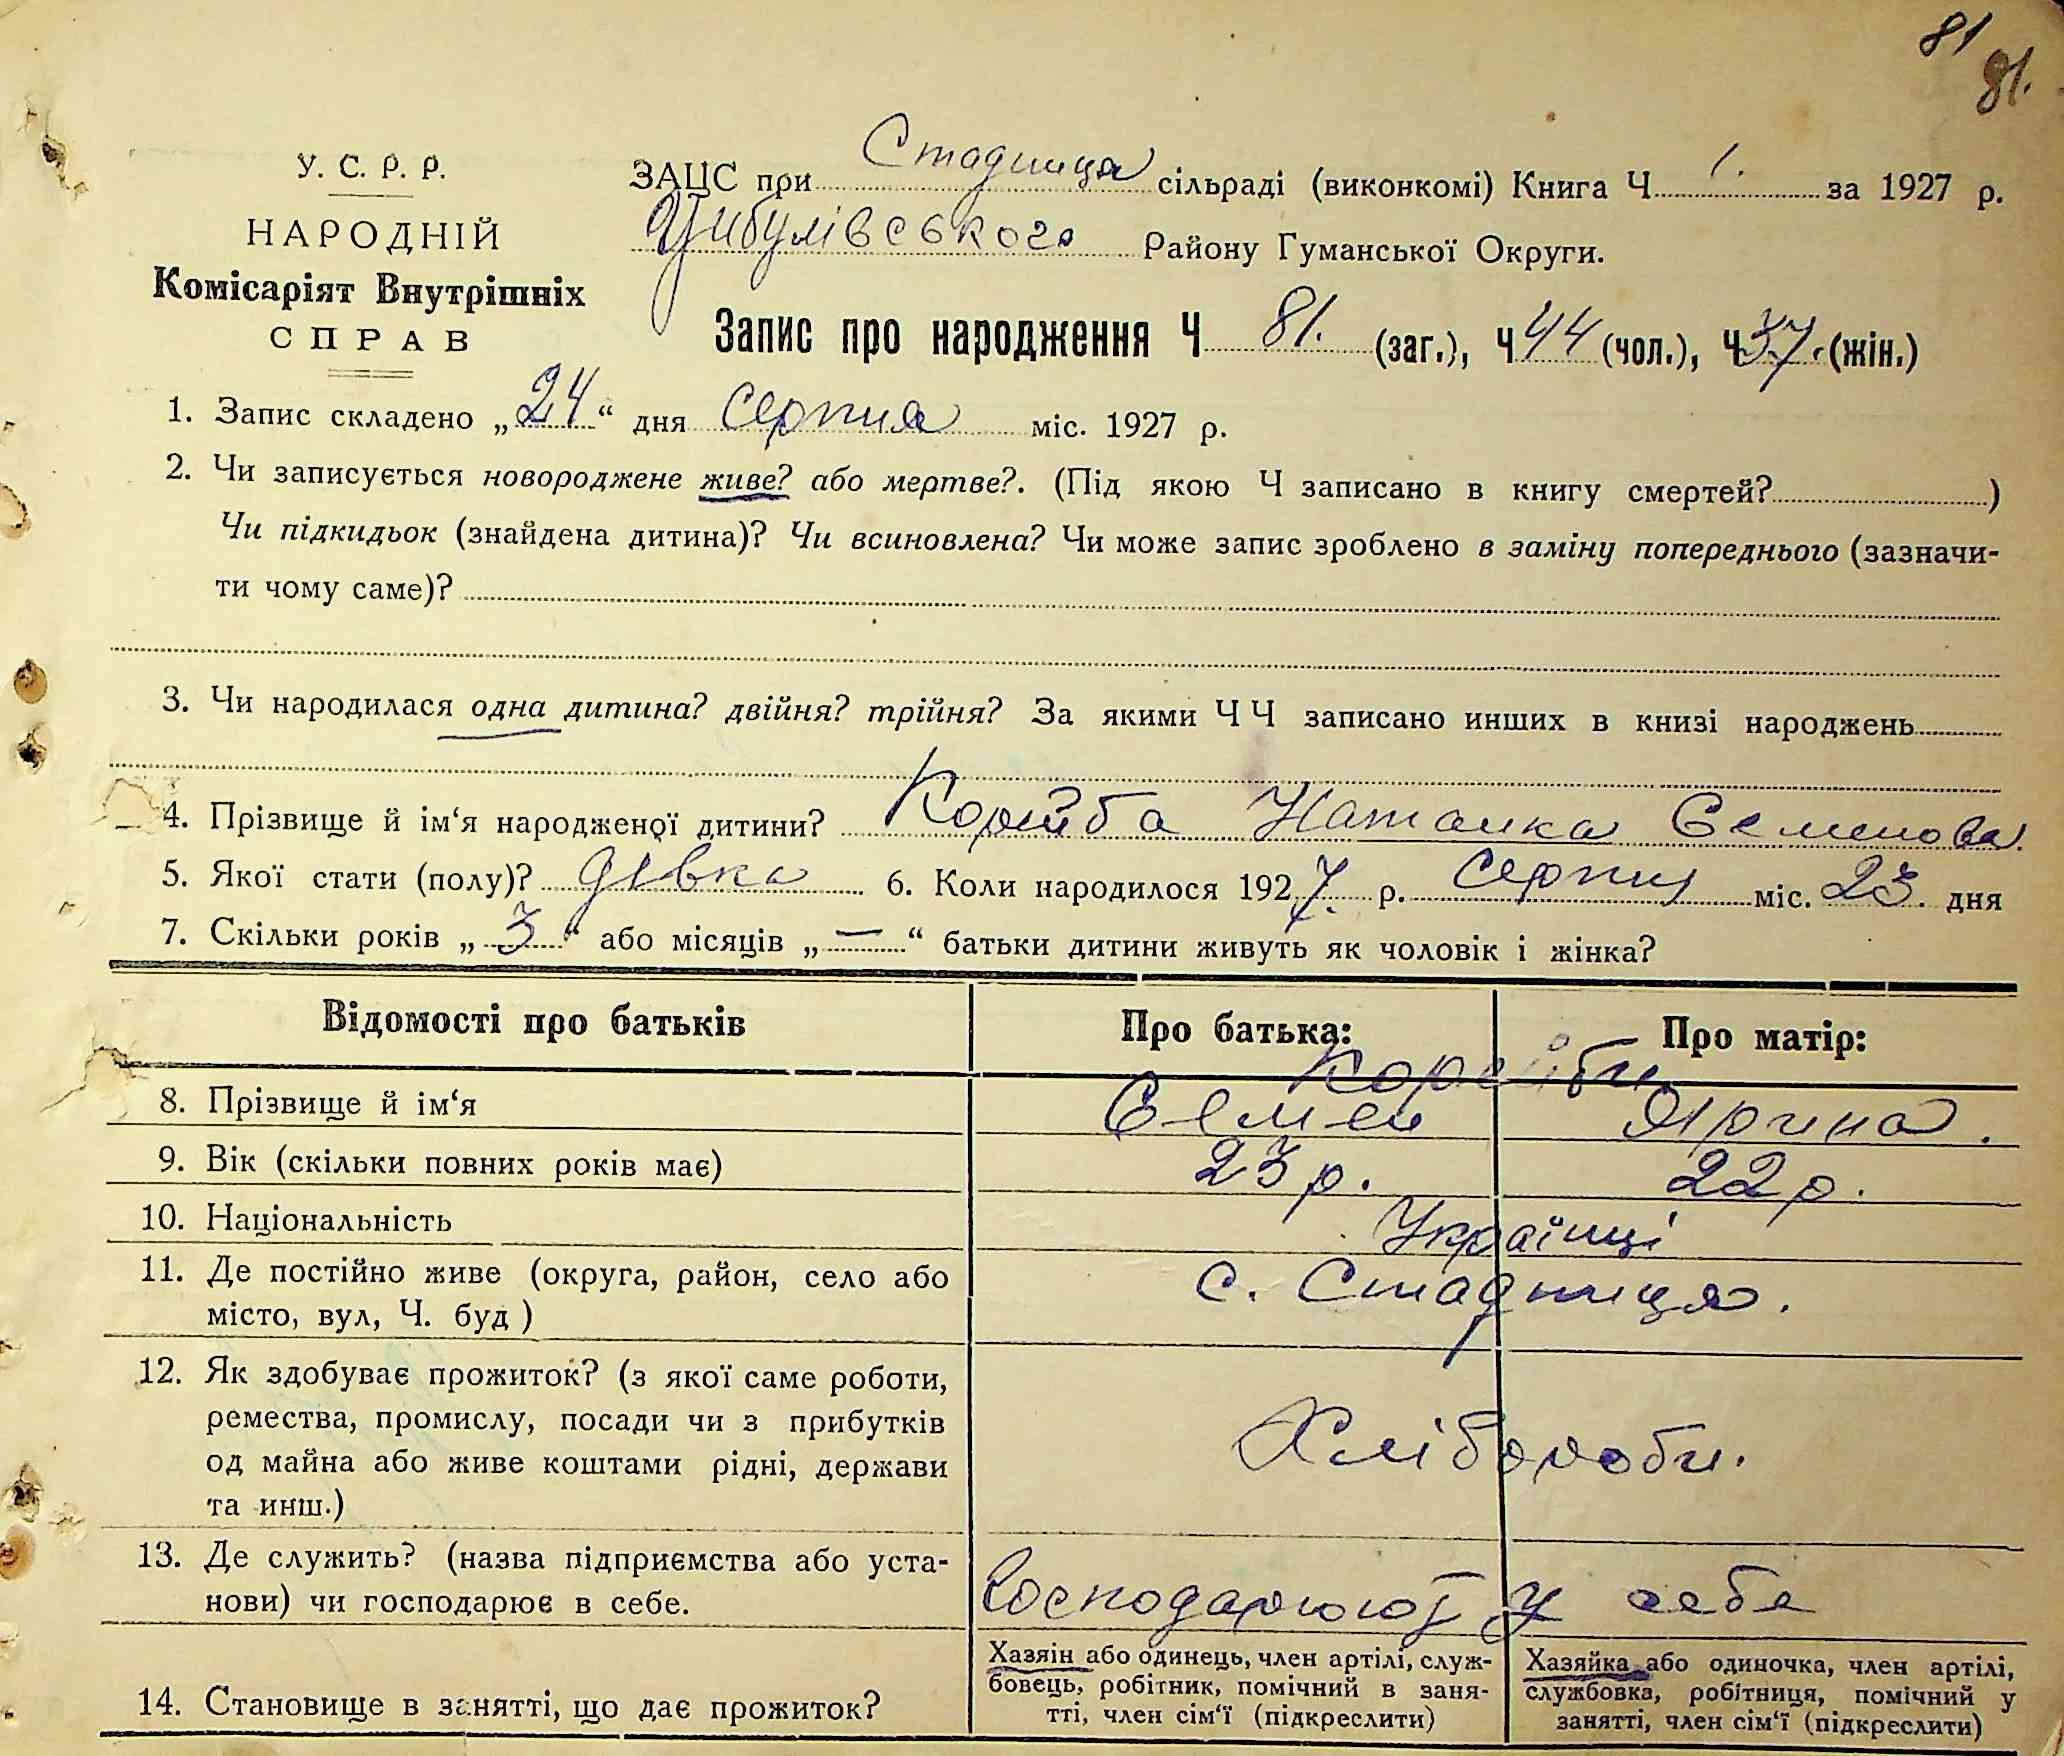 81
81.
У. С. Р. Р.
НАРОДНІЙ
Комісаріят Внутрішніх
СПРАВ
ЗАЦС при Стадниця сільраді (виконкомі) Книга Ч 1. за 1927 р.
Цибулівського Району Гуманської Округи.
Запис про народження Ч 81. (заг.), Ч 44 (чол.), Ч 37. (жін.)
1. Запис складено „24“ дня серпня міс. 1927 р.
2. Чи записується новороджене живе? або мертве?. (Під якою Ч записано в книгу смертей? )
Чи підкидьок (знайдена дитина)? Чи всиновлена? Чи може запис зроблено в заміну попереднього (зазначи-
ти чому саме)?
3. Чи народилася одна дитина? двійня? трійня? За якими ЧЧ записано инших в книзі народжень
4. Прізвище й ім‘я народженої дитини? Натанка Семенова.
5. Якої стати (полу)? дівка 6. Коли народилося 1927. р. серпня міс. 23. дня
7. Скільки років „3“ або місяців „—“ батьки дитини живуть як чоловік і жінка?
Відомості про батьків Про батька: Про матір:
8. Прізвище й ім‘я Семен Ярина.
9. Вік (скільки повних років має) 23 р. 22 р.
10. Національність Українці
11. Де постійно живе (округа, район, село або
місто, вул, Ч. буд ) с. Стадниця.
12. Як здобуває прожиток? (з якої саме роботи,
ремества, промислу, посади чи з прибутків
од майна або живе коштами рідні, держави
та инш.) Хлібороби.
13. Де служить? (назва підприємства або уста-
нови) чи господарює в себе. Господарюют у себе
14. Становище в занятті, що дає прожиток?
Хазяін або одинець, член артілі, служ-
бовець, робітник, помічний в заня-
тті, член сім‘ї (підкреслити)
Хазяйка або одиночка, член артілі,
службовка, робітниця, помічний у
занятті, член сім‘ї (підкреслити)